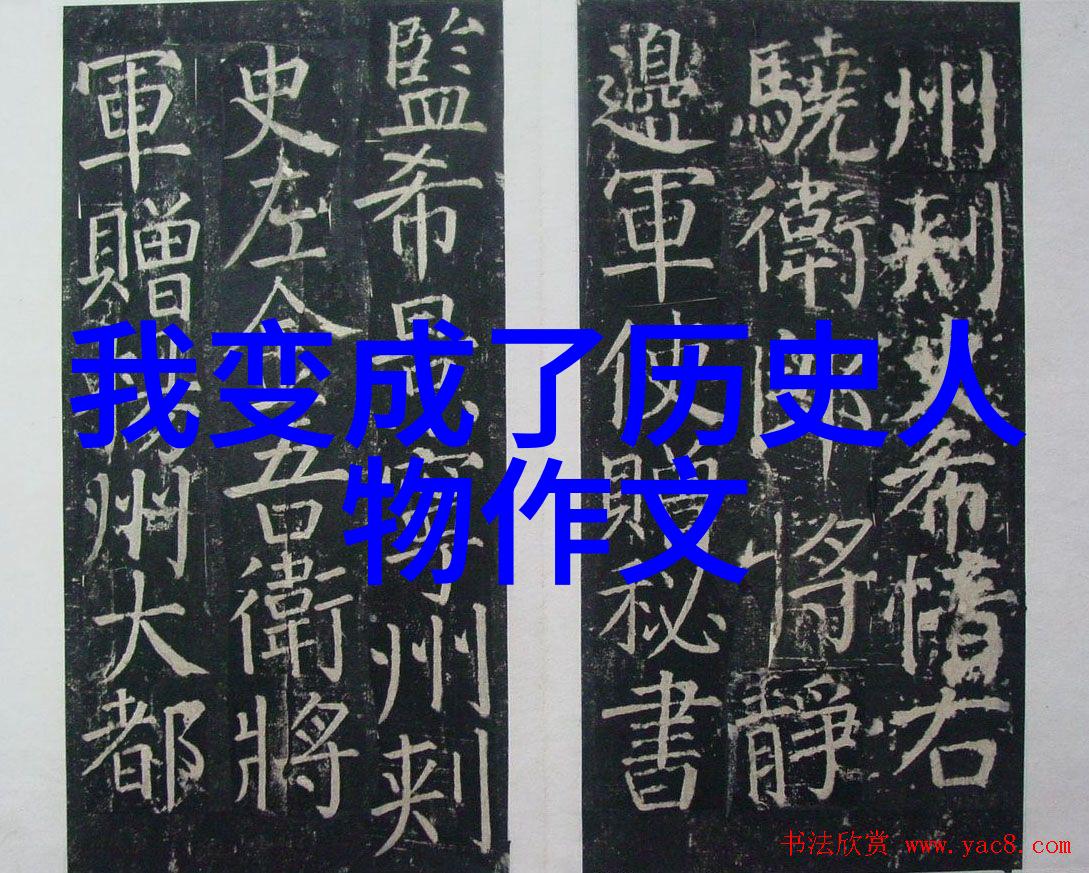 我变成了历史人
物作文
州刺史希愭右
驍衛將靜
邊軍使贈秘書
監希寧州刺
史左金吾衛將
軍贈州大都
书法欣赏 www.yac8.com